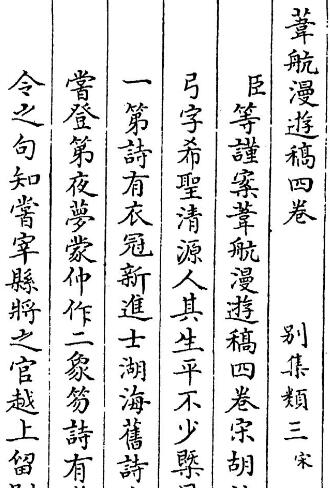 葦航漫遊稿四卷 别集類三 宋
臣等謹案葦航漫遊稿四卷宋胡
弓字希聖清源人其生平不少槩
一第詩有衣冠新進士湖海舊詩
嘗登第夜夢蒙仲作二象笏詩有
令之句知嘗宰縣將之官越上留别